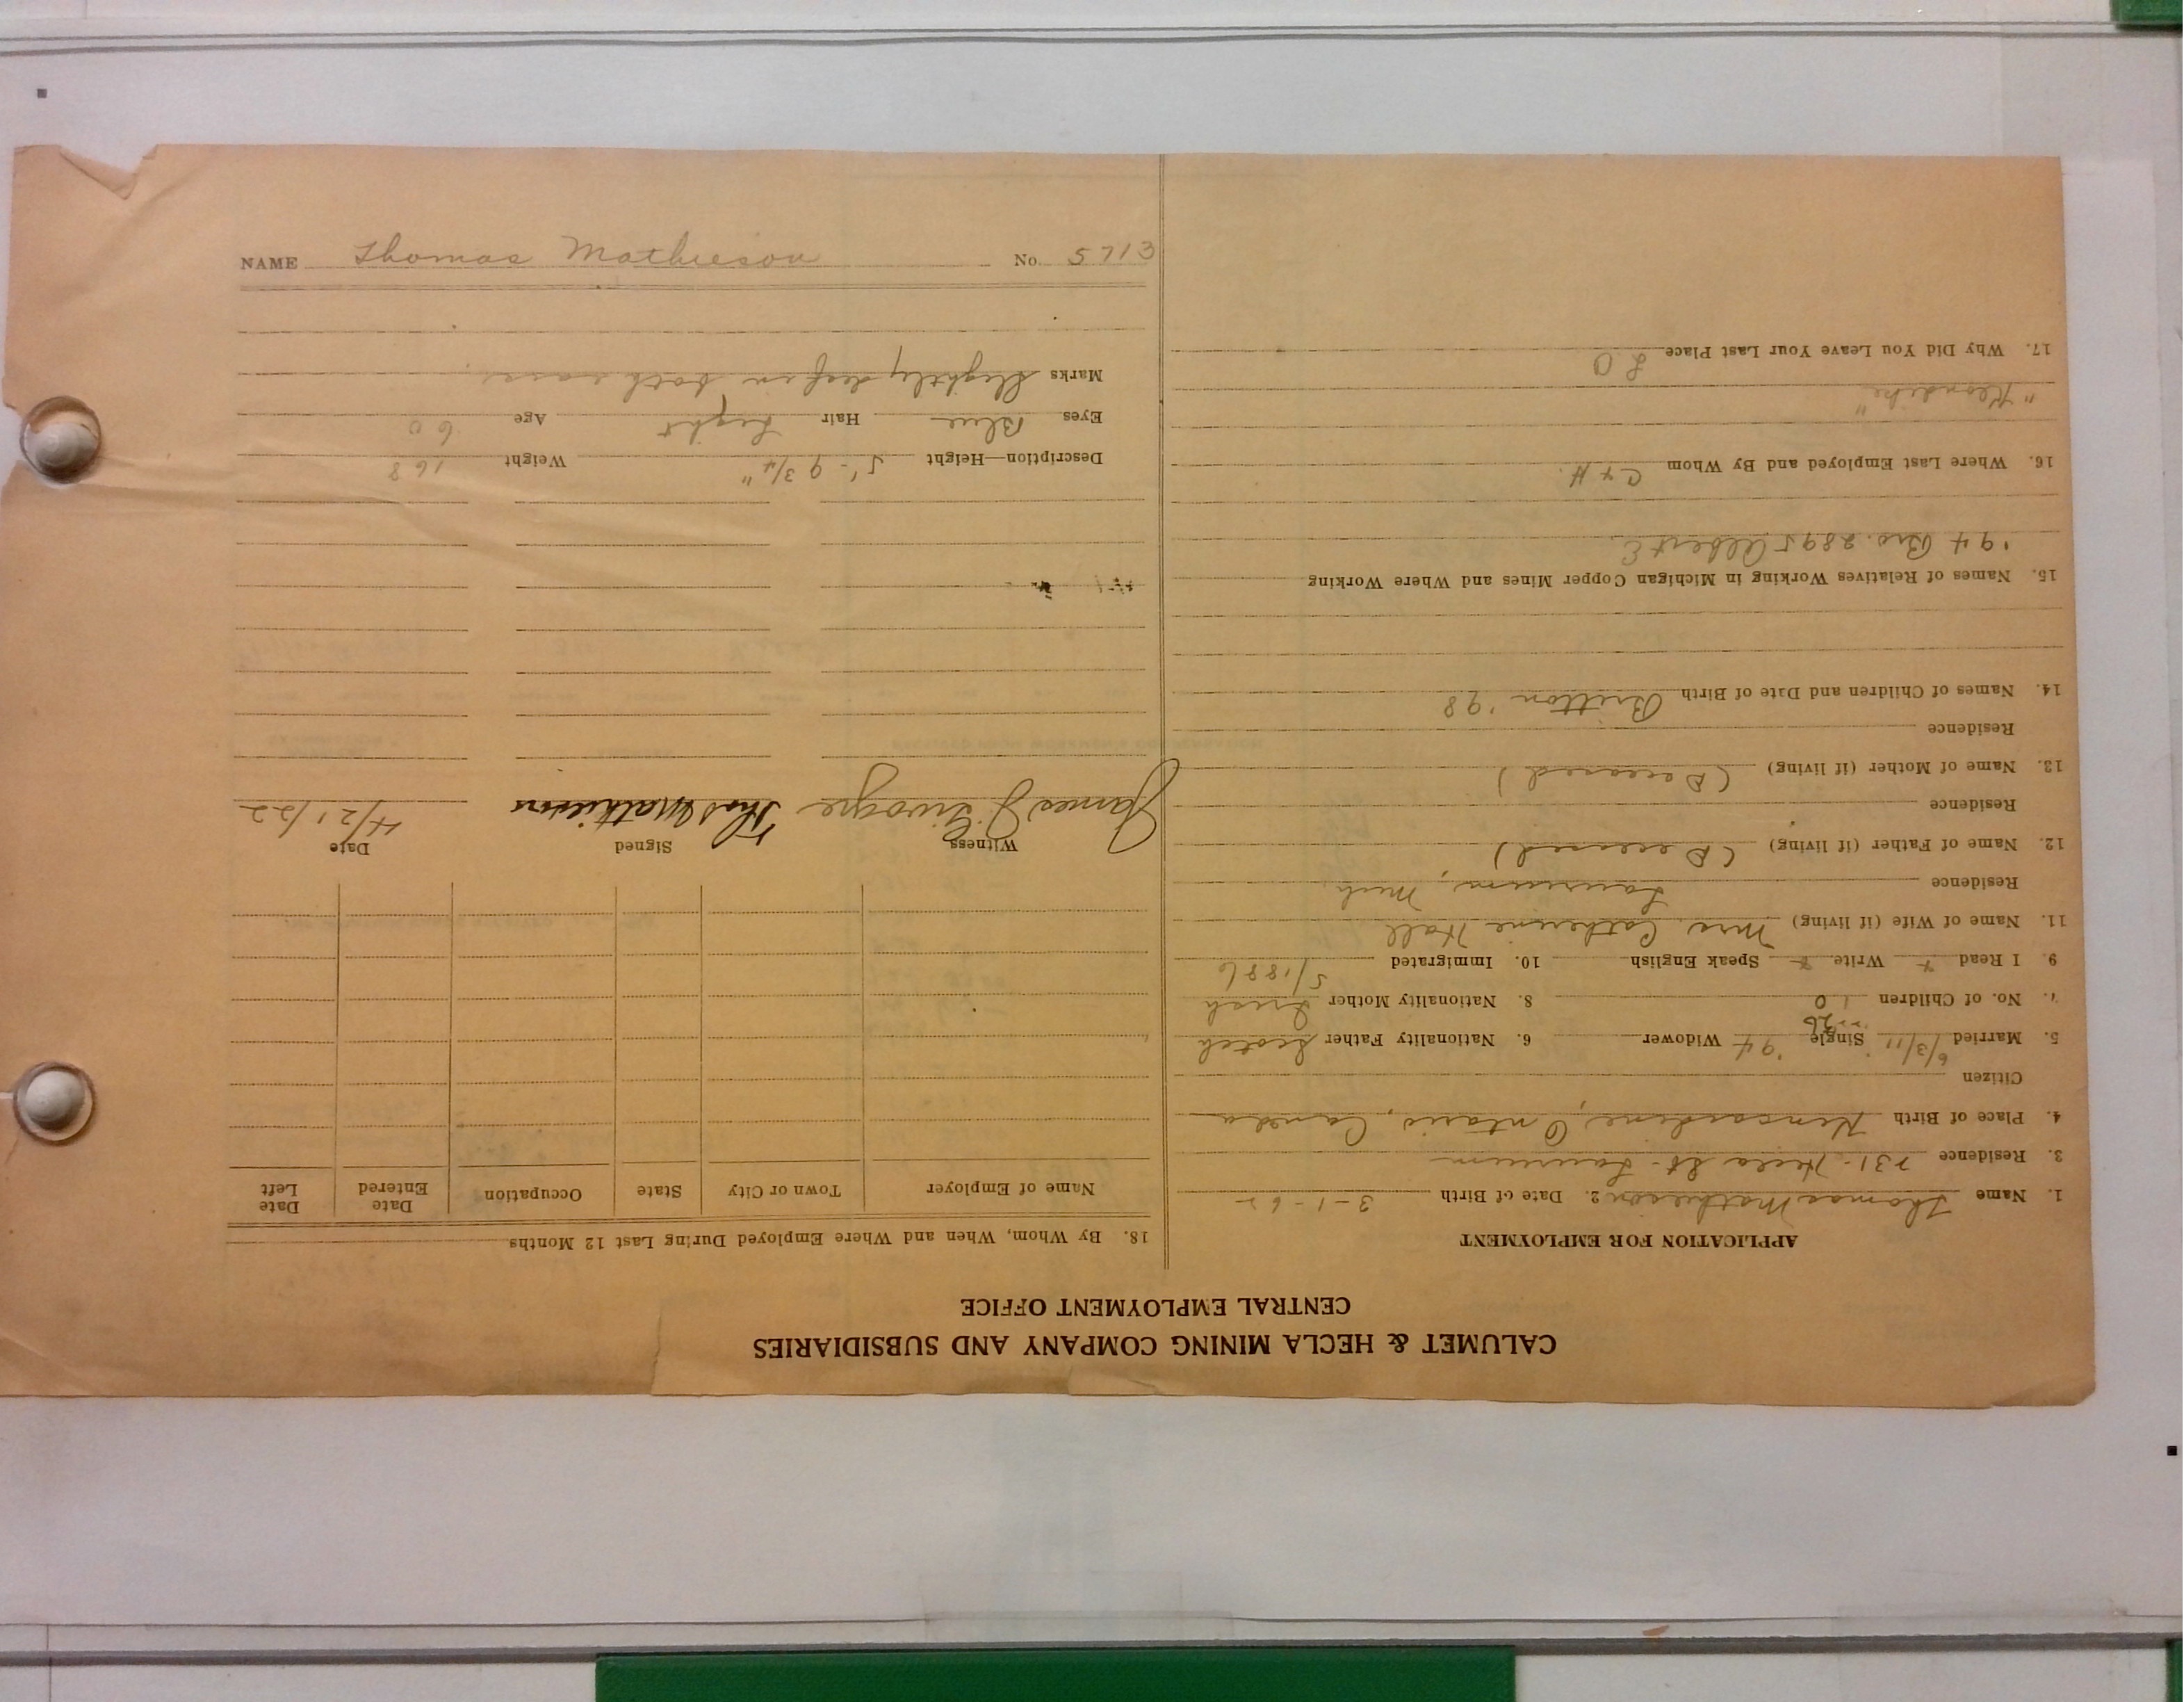 CALUMET & HECLA MINING COMPANY AND SUBSIDIARIES
CENTRAL EMPLOYMENT OFFICE
APPLICATION FOR EMPLOYMENT
1. Name Thomas Mathieson 2. Date of Birth 3-1-62
3. Residence 231- Hecla St- Laurium
4. Place of Birth Kincardine, Ontario, Canada
Citizen
5. Married 6/3/11 Single '94 Widower 6. Nationality Father Scotch
7. No. of Children 8. Nationality Mother Irish
9. I Read Write Speak English 10. Immigrated 5/1886
11. Name of Wife (if living) Mrs. Catherine Hall
Residence Laurium, Mich
12. Name of Father (if living) (Deceased)
Residence
13. Name of Mother (if living) (Deceased)
Residence
14. Names of Children and Date of Birth Britton '98
15. Names of Relatives Working in Michigan Copper Mines and Where Working
'94 Bro. 2895 Albert E.
16. Where Last Employed and By Whom C + H.
"Klondike"
17. Why Did You Leave Your Last Place L O
18. By Whom, When and Where Employed During Last 12 Months
Name of Employer Town or City State Occupation Date Entered Date Left
Witness Signed Date
James J. Thos Mathieson 4/21/22
Description—Height 5'- 9 3/4" Weight 168
Eyes Blue Hair Light Age 60
Marks Slightly deaf in both ears.
NAME Thomas Mathieson No. 5713